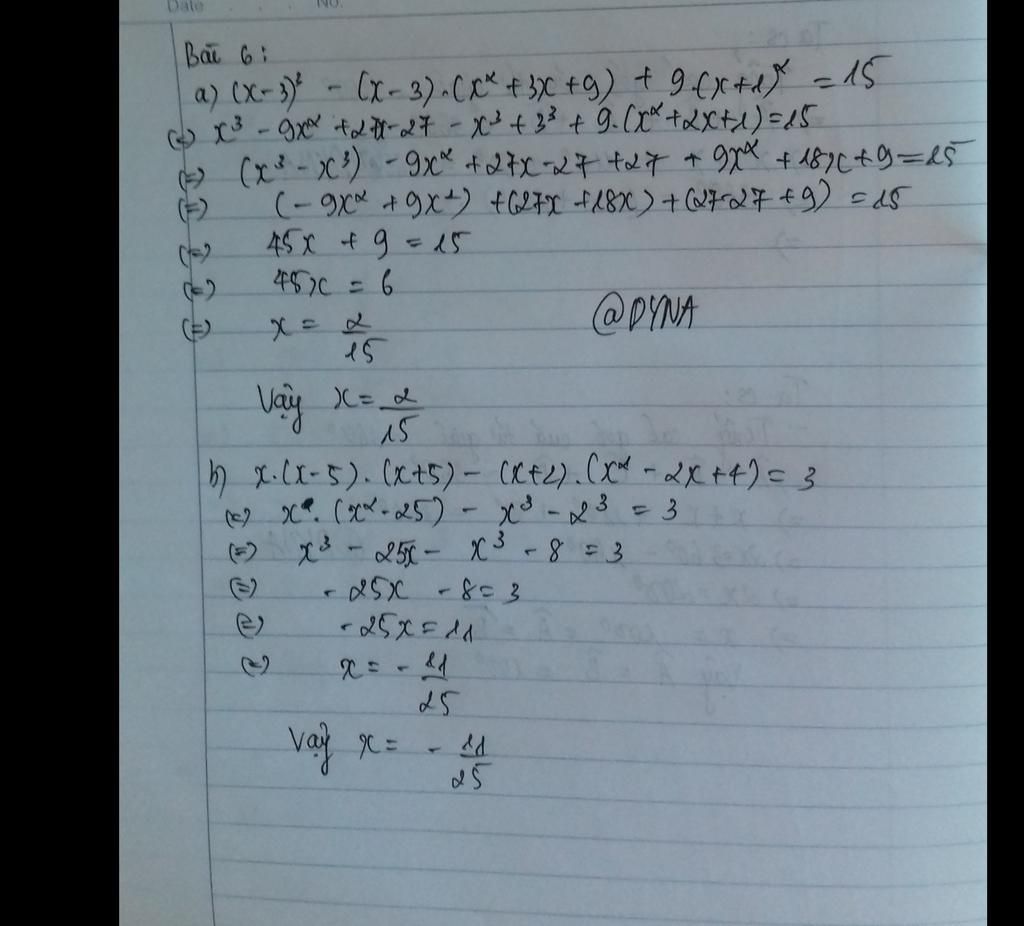 Date . . . No.
Bài 6:
a) (x-3)³ - (x-3).(x² + 3x + 9) + 9.(x+1)² = 15
(=) x³ - 9x² + 27x - 27 - x³ + 3³ + 9.(x² + 2x + 1) = 15
(=) (x³ - x³) - 9x² + 27x - 27 + 27 + 9x² + 18x + 9 = 15
(=) (-9x² + 9x²) + (27x + 18x) + (27-27 + 9) = 15
(=) 45x + 9 = 15
(=) 45x = 6
(=) x = 2/15
@DYNA
Vậy x = 2/15
b) x.(x-5).(x+5) - (x+2).(x² - 2x + 4) = 3
(=) x.(x² - 25) - x³ - 2³ = 3
(=) x³ - 25x - x³ - 8 = 3
(=) -25x - 8 = 3
(=) -25x = 11
(=) x = -11/25
Vậy x = -11/25